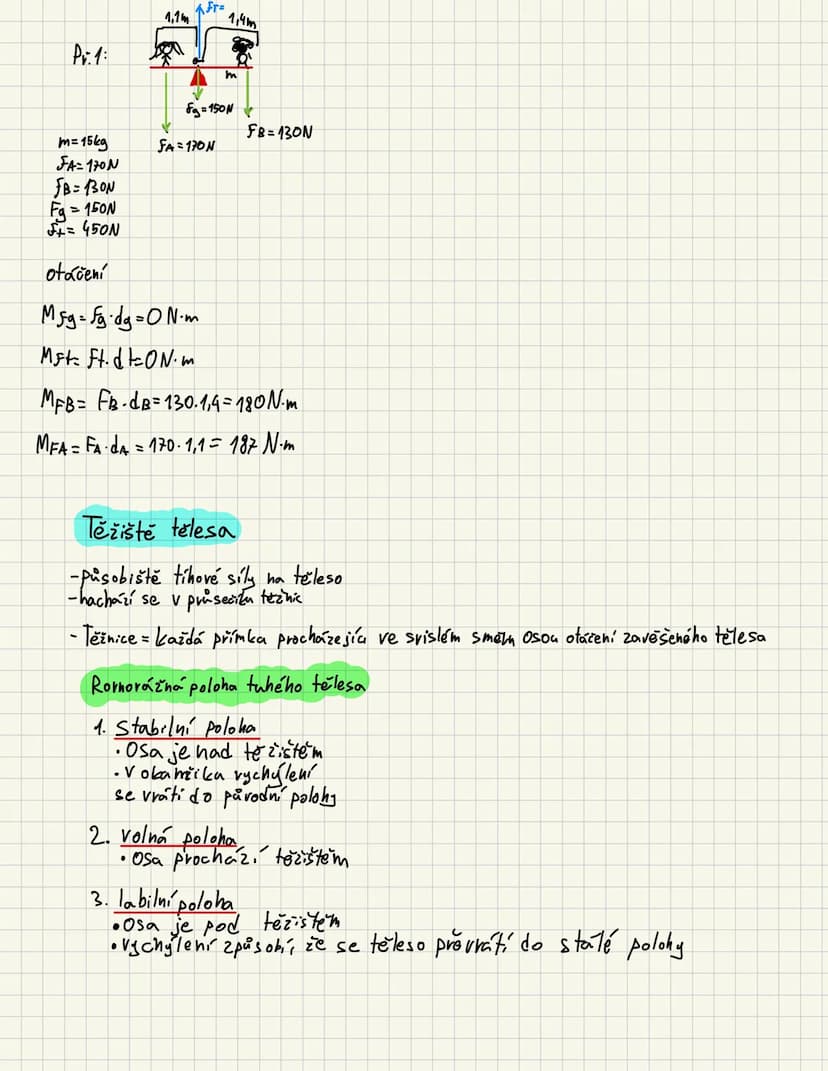 1,1m Ft=
1,4m
Př.1:
m
Fg=150N
FA=170N
FB=130N
m=15kg
FA=170N
FB=130N
Fg=150N
Ft=450N
otáčení
MFg=Fg·dg=0N·m
MFt=Ft.dt=0N·m
MFB=FB·dB=130.1,4=180N·m
MFA=FA·dA=170·1,1=187N·m
Těžiště tělesa
-působiště tíhové síly na těleso
-nachází se v průsečíku těžnic
- Těžnice = každá přímka procházející ve svislém směru osou otáčení zavěšeného tělesa
Rovnovážná poloha tuhého tělesa
1. Stabilní poloha
·Osa je nad těžištěm
·V okamžiku vychýlení
se vrátí do původní polohy
2. volná poloha
·Osa prochází těžištěm
3. labilní poloha
·osa je pod těžištěm
·vychýlení způsobí, že se těleso převrátí do stálé polohy